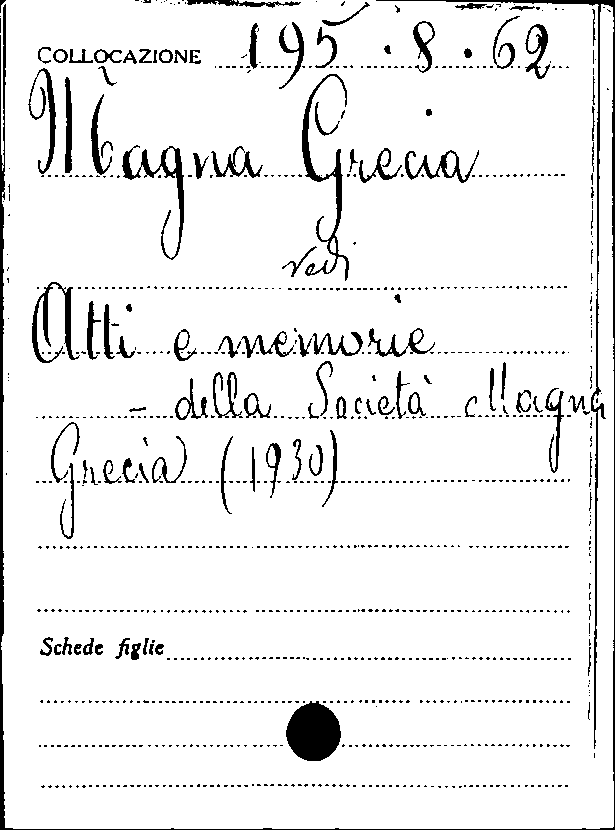 COLLOCAZIONE 195.8.62
Magna Grecia
vedi
Atti e memorie
- della Società Magna
Grecia (1930)
Schede figlie